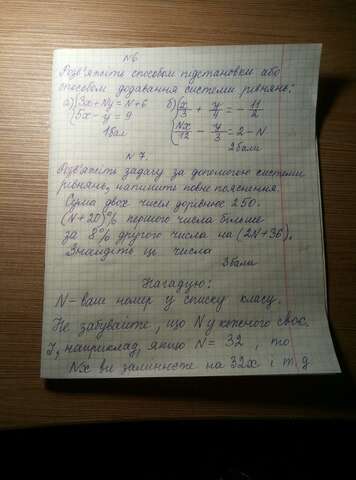 N6
Розв'яжіть способом підстановки або
способом додавання системи рівнянь:
а) {3x+Ny=N+6 б) {x/3 + y/4 = - 11/2
5x-y=9 Nx/12 - y/3 = 2-N
1бал 2бали
N 7.
Розв'яжіть задачу за допомогою системи
рівнянь, напишіть повне пояснення.
Сума двох чисел дорівнює 250.
(N+20)% першого числа більше
за 8% другого числа на (2N+36).
Знайдіть ці числа
3бали
Нагадую:
N-ваш номер у списку класу.
Не забувайте, що N у кожного своє.
І, наприклад, якщо N= 32, то
Nx ви замінюєте на 32x і т.д